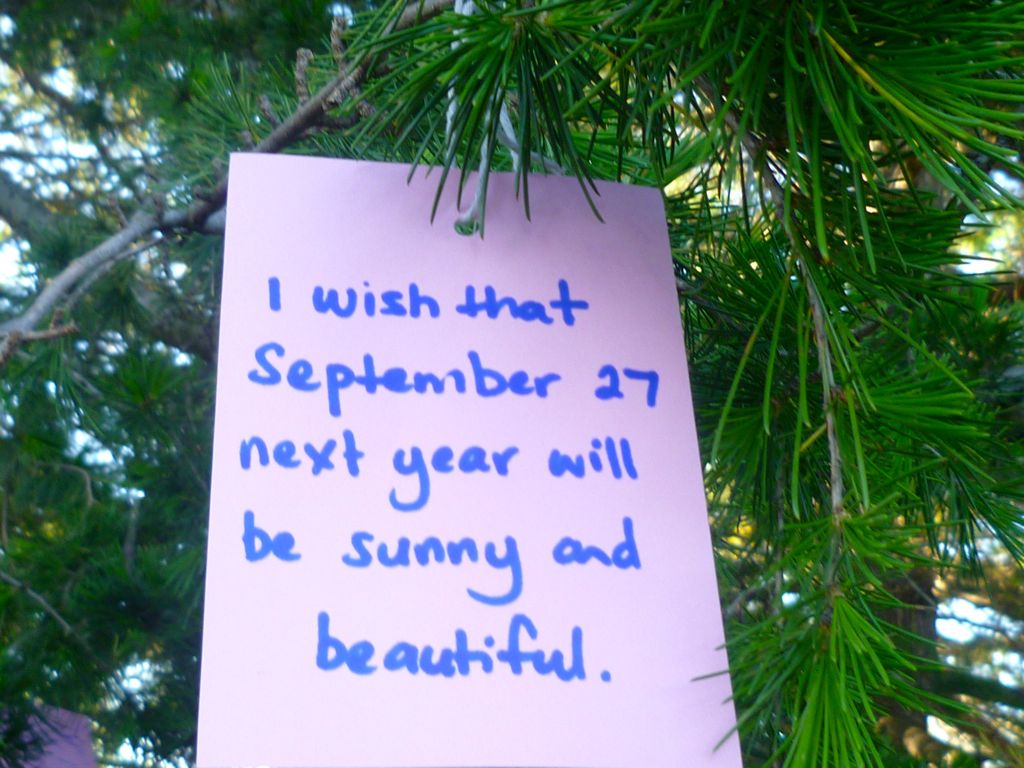 I wish that
September 27
next year will
be sunny and
beautiful.